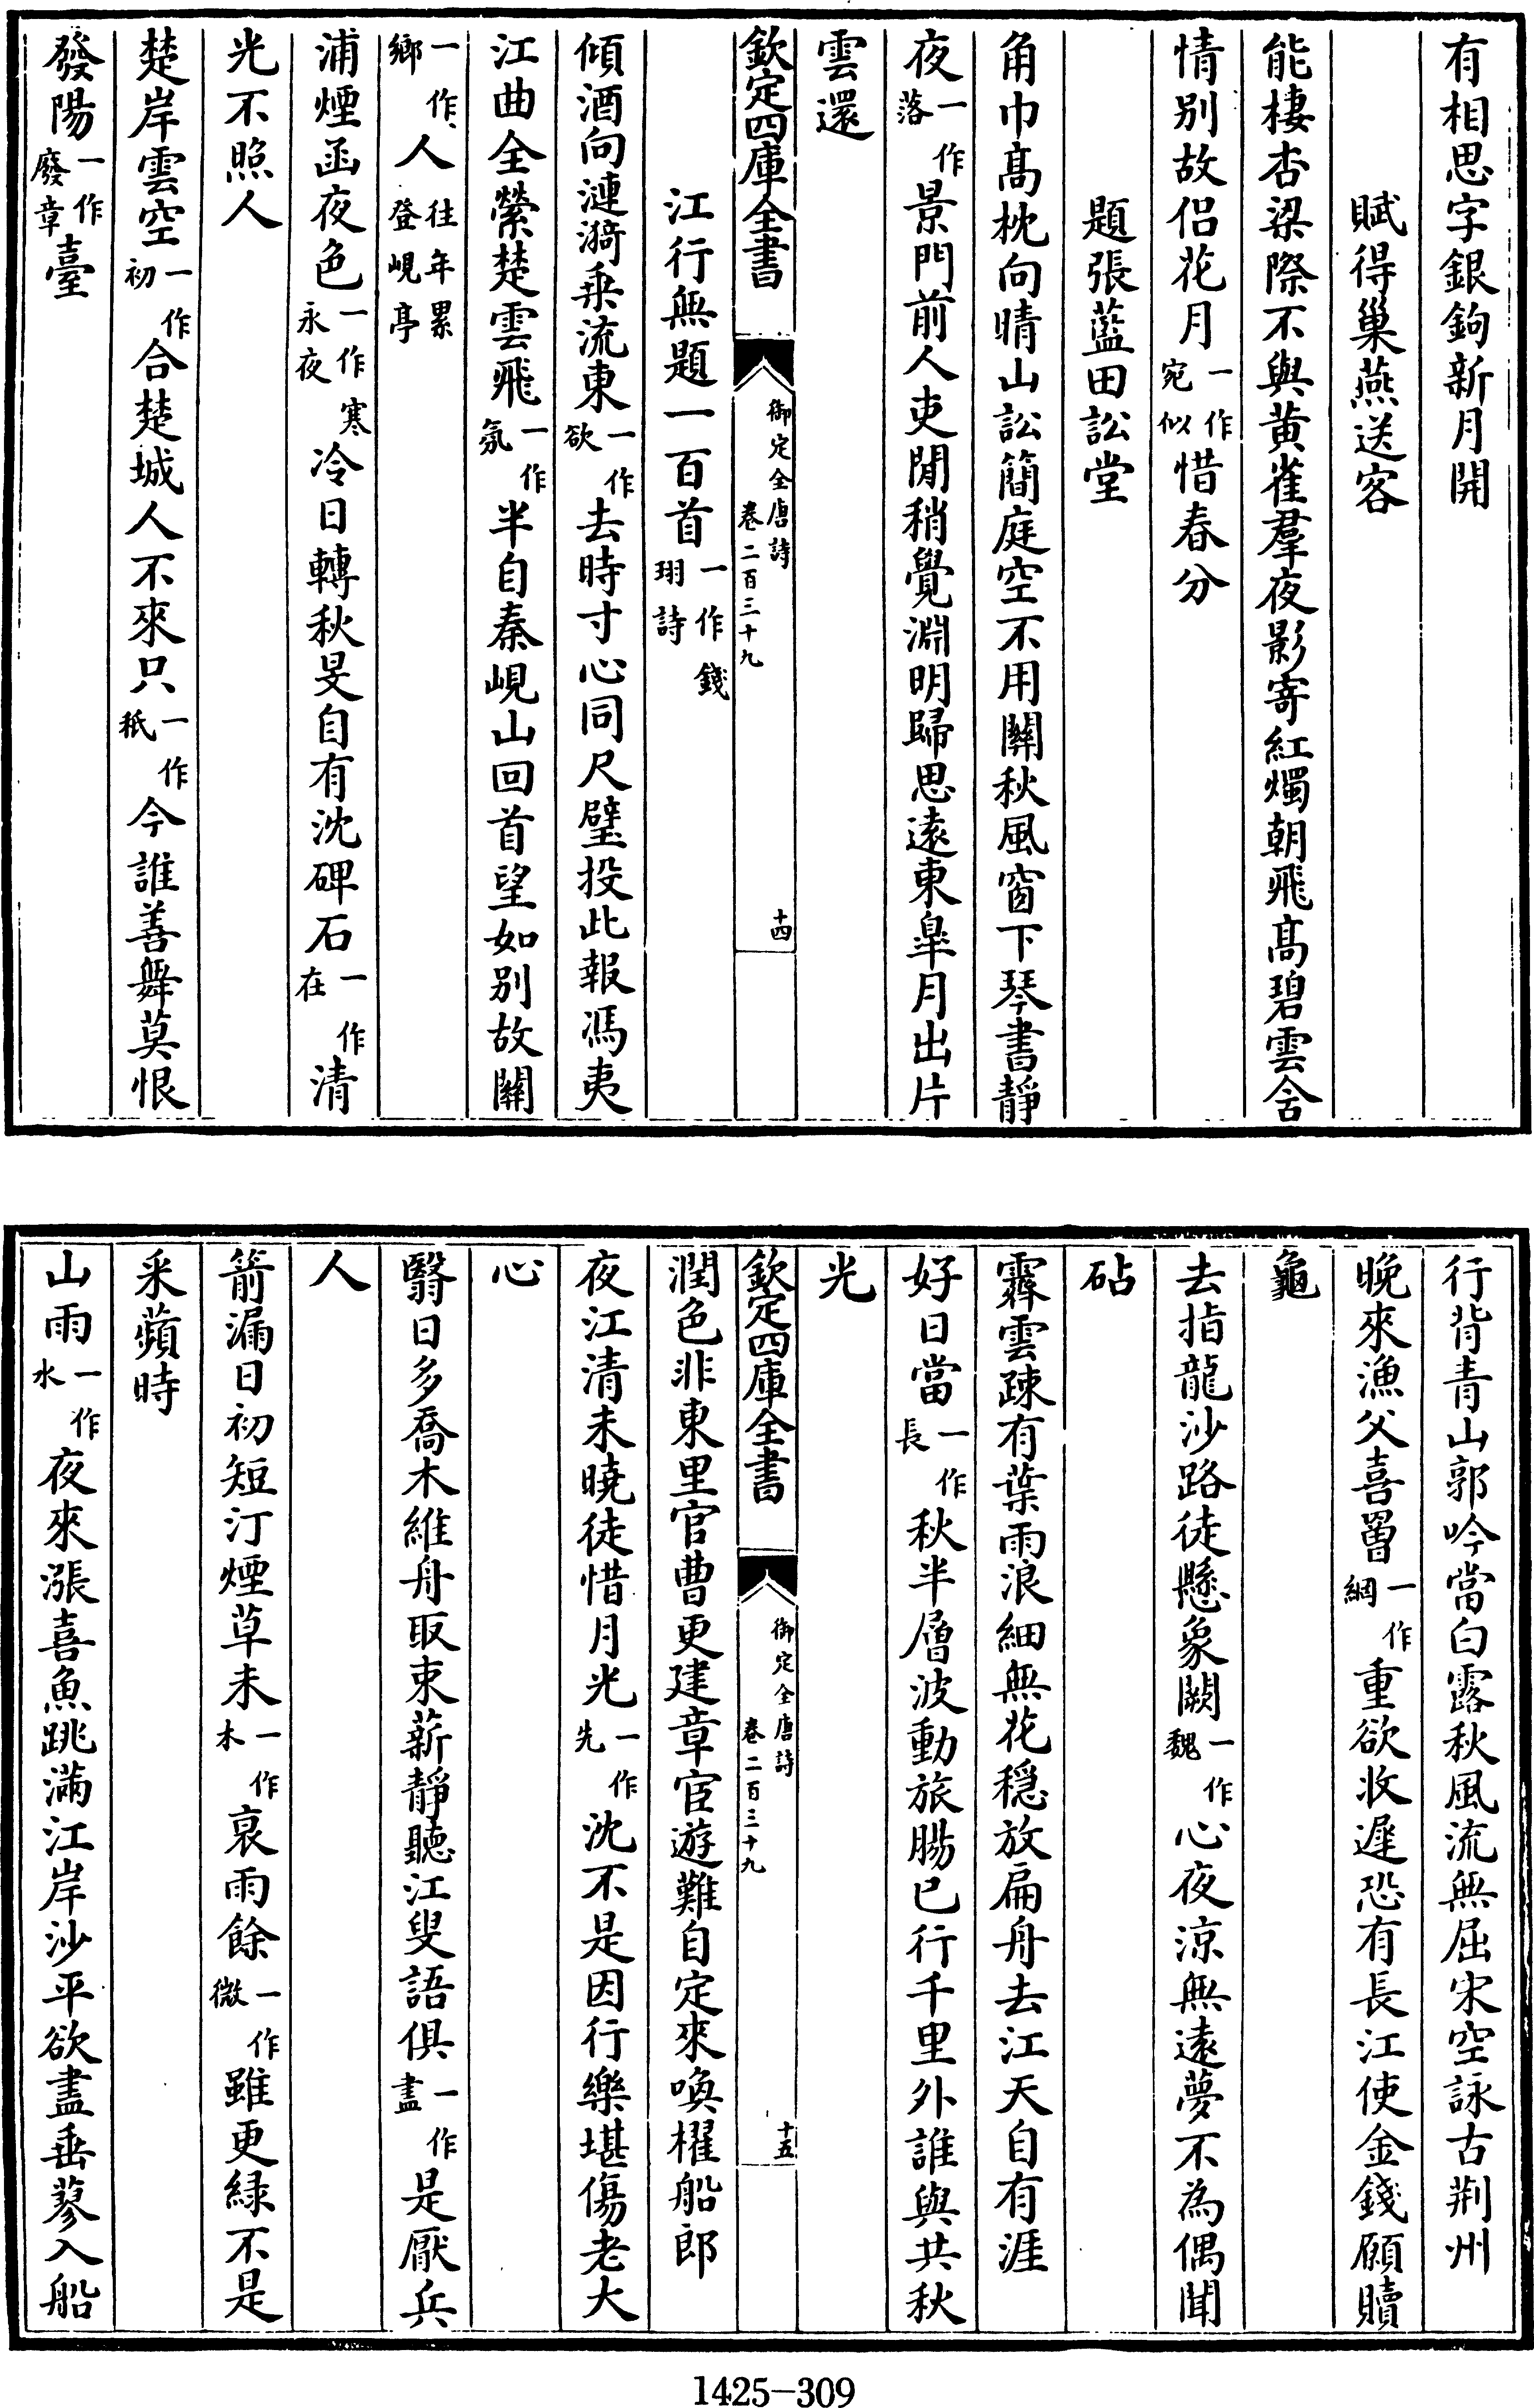 有相思字銀鉤新月開
賦得巢燕送客
能棲杏梁際不與黄雀羣夜影寄紅燭朝飛髙碧雲含
情别故侣花月一作宛似惜春分
題張藍田訟堂
角巾髙枕向晴山訟簡庭空不用關秋風窗下琴書靜
夜一作落景門前人吏閒稍覺淵明歸思遠東臯月出片
雲還
欽定四庫全書
御定全唐詩
卷二百三十九
十四
江行無題一百首一作錢珝詩
傾酒向漣漪乗流東一作欲去時寸心同尺璧投此報馮夷
江曲全縈楚雲飛一作氛半自秦峴山回首望如别故關
一作鄉人往年累登峴亭
浦煙函夜色一作寒永夜冷日轉秋旻自有沈碑石一作在清
光不照人
楚岸雲空一作初合楚城人不來只一作秪今誰善舞莫恨
發陽一作廢章臺
行背青山郭吟當白露秋風流無屈宋空詠古荆州
晚來漁父喜罾一作網重欲收遲恐有長江使金錢願贖
龜
去指龍沙路徒懸象闕一作魏心夜涼無遠夢不為偶聞
砧
霽雲疎有葉雨浪細無花穏放扁舟去江天自有涯
好日當一作長秋半層波動旅腸已行千里外誰與共秋
光
欽定四庫全書
御定全唐詩
卷二百三十九
十五
潤色非東里官曹更建章宦遊難自定來喚櫂船郎
夜江清未曉徒惜月光一作先沈不是因行樂堪傷老大
心
翳日多喬木維舟取束薪靜聽江叟語俱一作盡是厭兵
人
箭漏日初短汀煙草未一作木衰雨餘一作微雖更緑不是
采蘋時
山雨一作水夜來漲喜魚跳滿江岸沙平欲盡垂蓼入船
1425-309